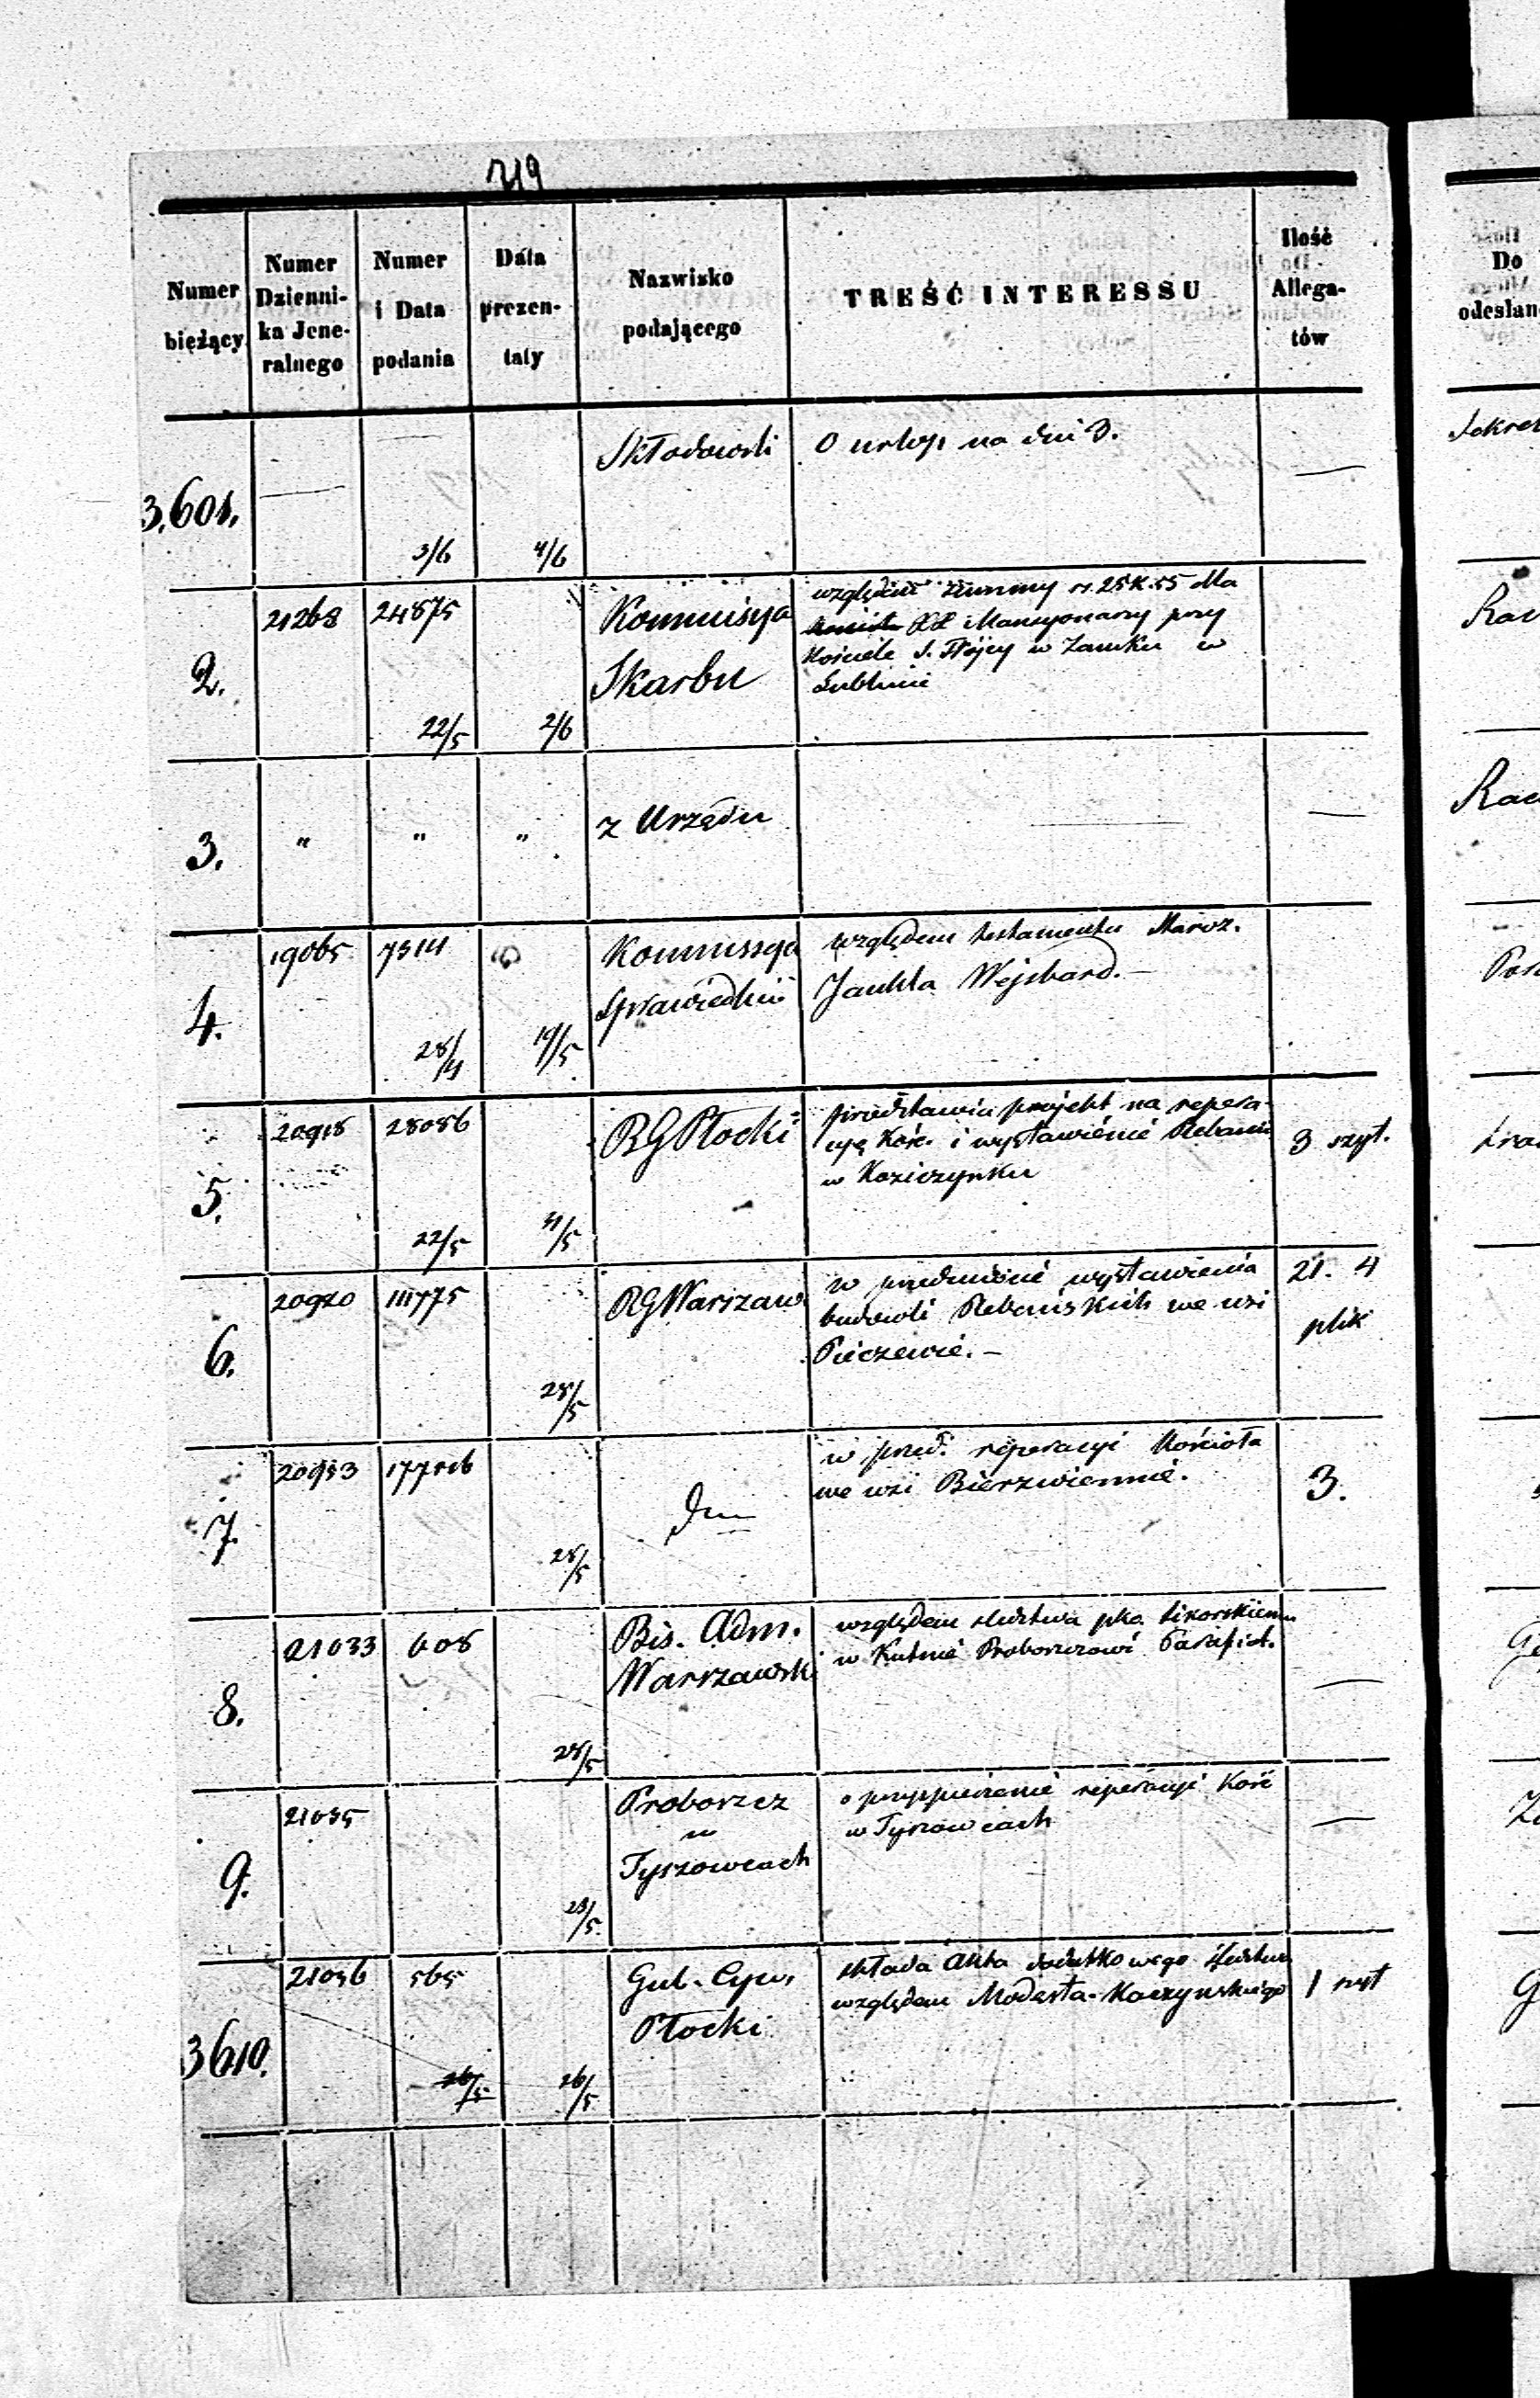 719
Numer bieżący
Numer Dzienni- ka Jene- ralnego
Numer i Data podania
Data prezen- taty
Nazwisko podającego
TREŚĆ INTERESSU
Ilość Allega- tów
Do
odesłan
3,601.
3/6
4/6
Skłodowski
O urlop na dni 3.
Sekret
2.
21268
24875
22/5
2/6
Kommissya
Skarbu
względem summy rs. 25 k. 55 dla
XX Mansyonarzy przy
Kościele S. Trójcy w Zamku w
Lublinie
3.
"
"
"
z Urzędu
4.
19065
7514
19/5
Kommissya
Sprawiedliw
względem testamentu Staroz.
Jankla Wejsbard. —
5.
20918
28086
22/5
RG Płocki
przedstawia projekt na repera-
cyę Kość. i wystawienie Plebanii
w Kosiczynku
3 szyt.
6.
20920
28/5
RG Warszaw.
w przedmiocie wystawienia
budowli Plebańskich we wsi
Pieczewie. —
21. 4
plik
7.
20953
28/5
w przed. reperacyi Kościoła
we wsi Bierzwiennie.
3.
8.
21033
608
28/5
Bis. Adm.
Warszawski
względem śledztwa pko. Sikorskiemu
w Kutnie Proboszczowi Parafial.
9.
21035
28/5
Proboszcz
w
Tyszowcach
o przyspieszenie reperacyi Kość
w Tyszowcach
3610.
21036
565
26/5
26/5
Gub. Cyw.
Płocki
składa Akta dodatkowego śledztwa
względem Modesta Kaczyńskiego
1 szyt
G